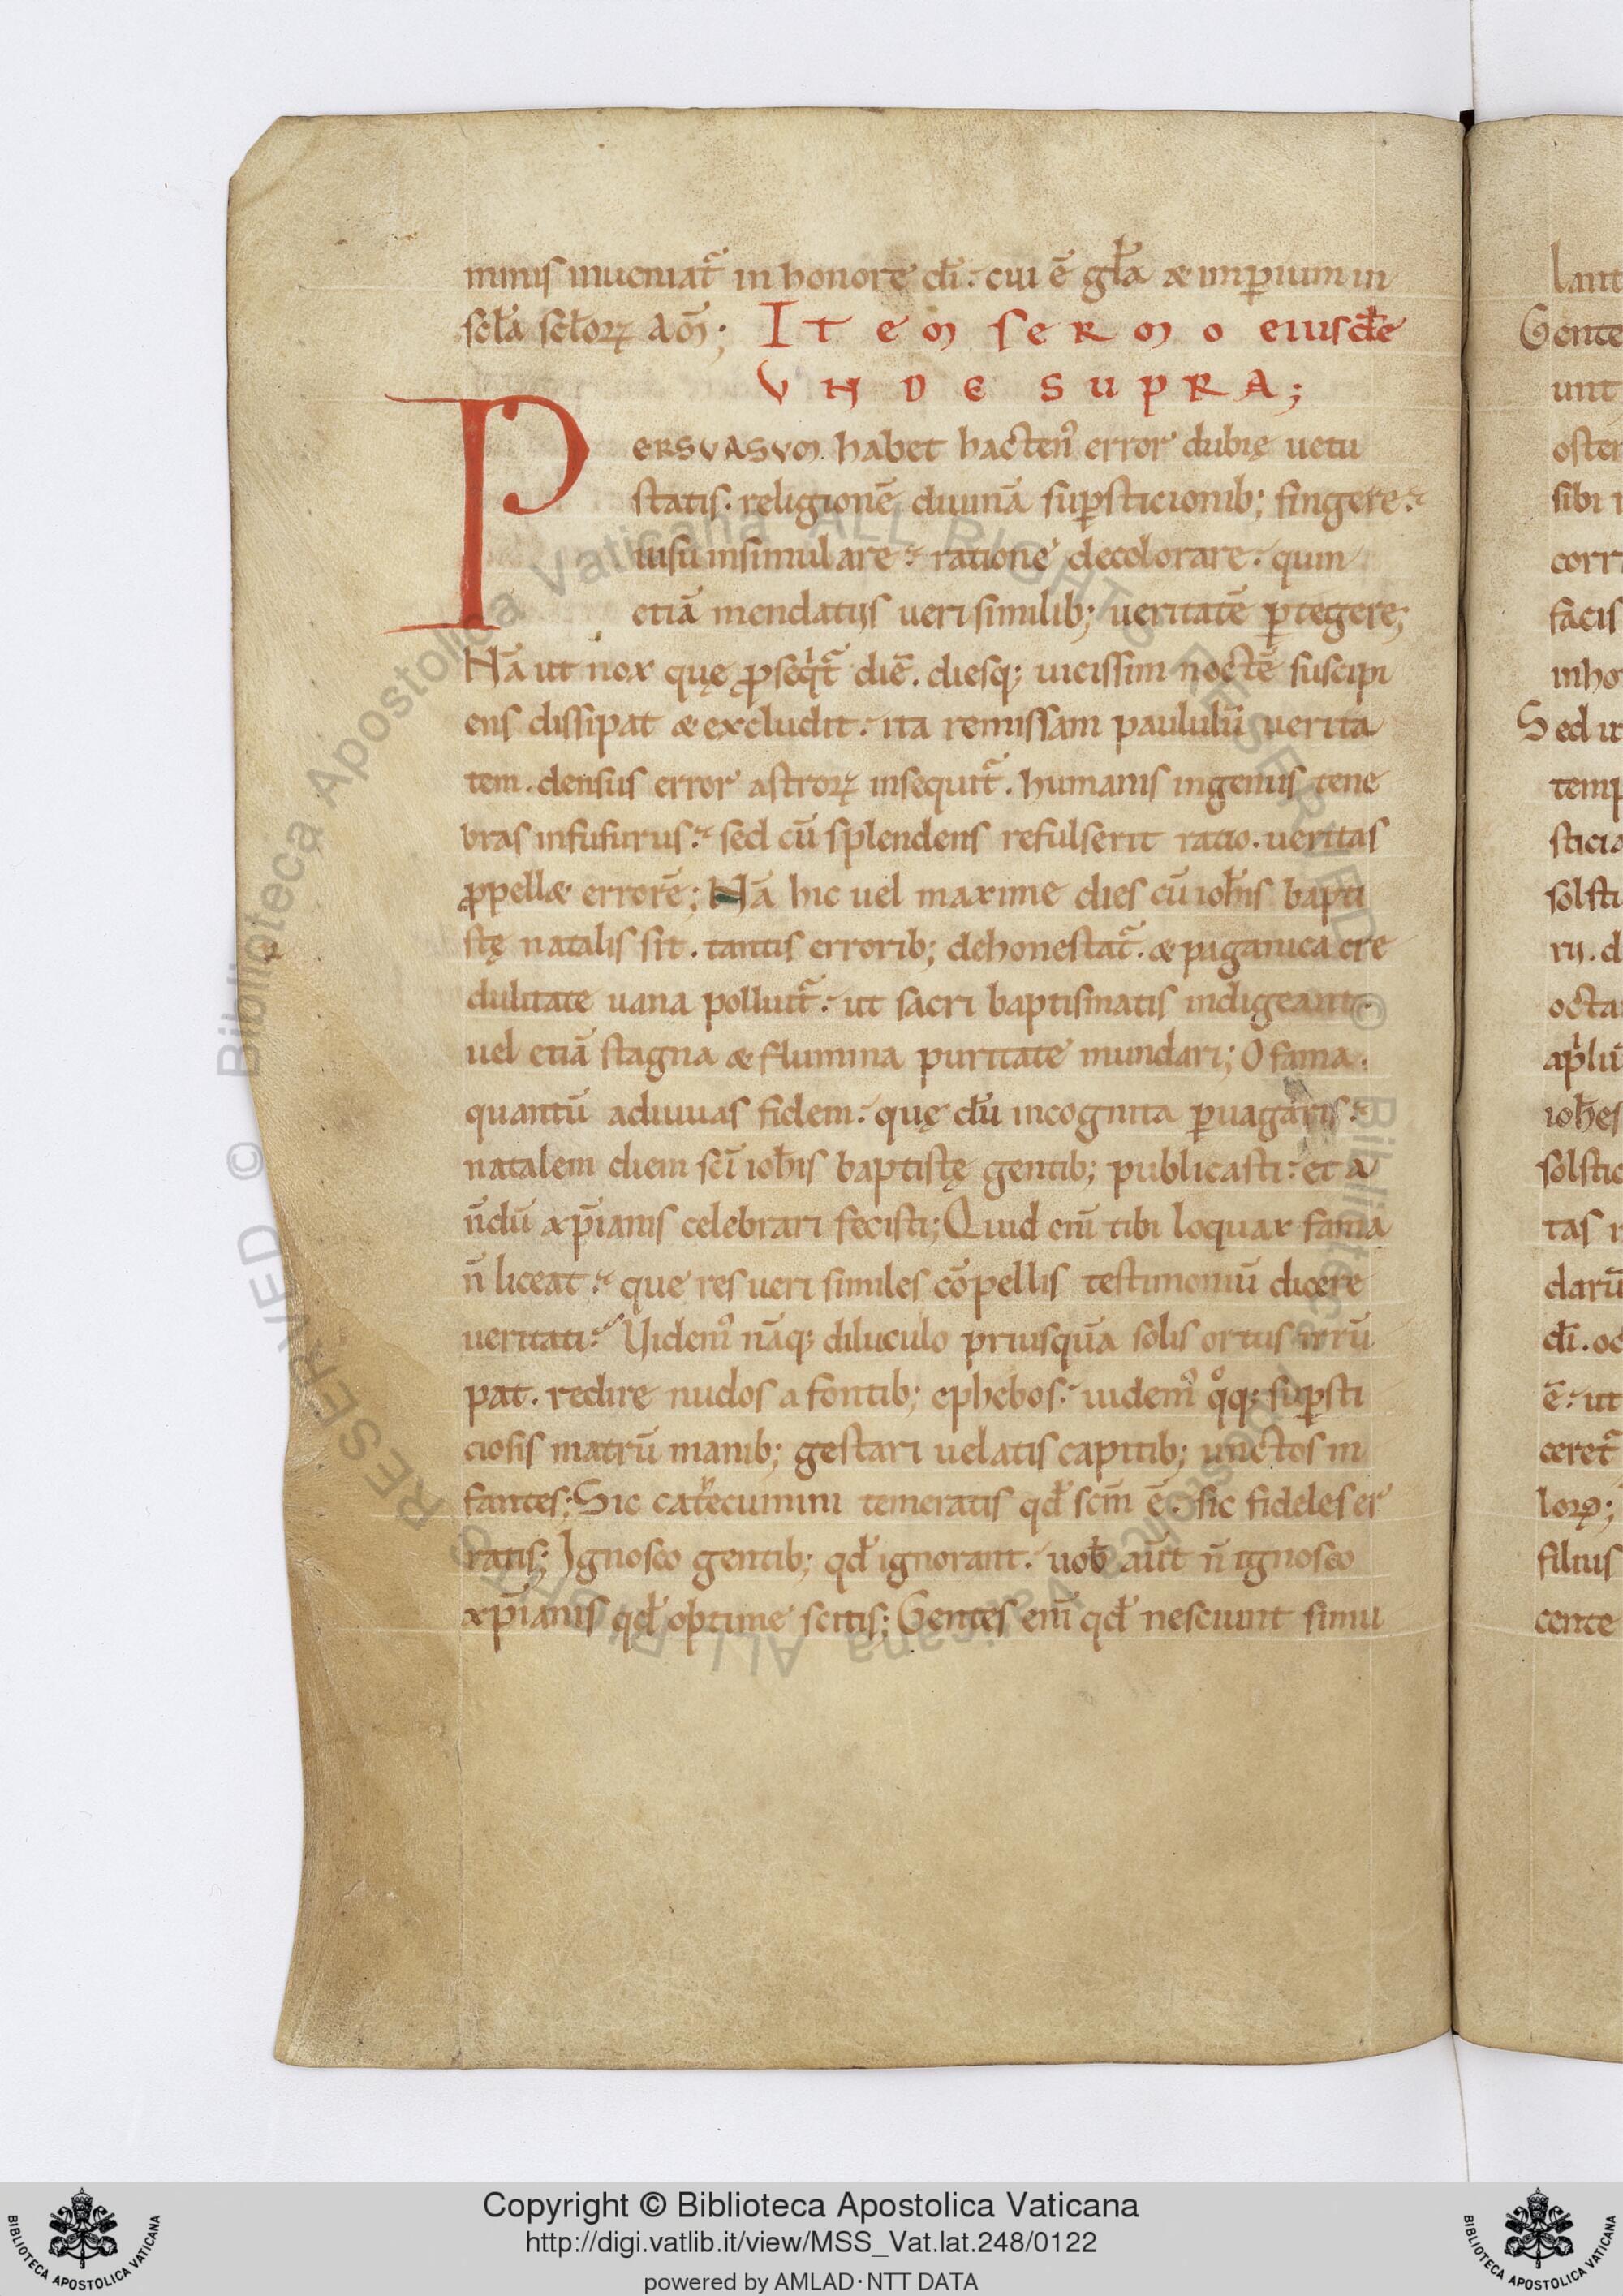 minis inueniat᷑ in honore dī· cui ē gƚa & imꝑium in
scƚa scƚoꝝ am̄;  Item sermo eiusdē
UNDE SUPRA;
PERSVASVM habet hacten᾿ error dubię uetu
statis· religionē diuinā suꝑsticionib; fingere·
uisu insimulare· ratione decolorare· quin
etiā mendatiis ueri similib; ueritatē ꝓtegere;
Nā ut nox quę ꝓseqͥt᷑ diē· diesq; uicissim noctē suscipi
ens dissipat & excludit· ita remissam paululū uerita
tem· densus error astroꝝ insequit᷑· humanis ingeniis tene
bras infusurus· sed cū splendens refulserit ratio· ueritas
ꝓpell& errorē; Nā hic uel maxime dies cū ioh̄is bapti
stę natalis sit· tantis errorib; dehonestat᷑· & paganica cre
dulitate uana polluit᷑· ut sacri baptismatis indigeant·
uel etiā stagna & flumina puritate mundari; O fama·
quantū adiuuas fidem· quę dū incognita ꝑuagaris·
natalem diem scī ioh̄is baptistę gentib; publicasti· et a
n̄dū xp̄ianis celebrari fecisti; Quid eni̅ tibi loquax fama
n̄ liceat· que res ueri similes cōpellis testimoniū dicere
ueritati· Uidem᾿ nāq; diluculo priusquā solis ortus irrū
pat· redire nudos a fontib; ephebos· uidem᾿ qͦq; suꝑsti
ciosis matrū manib; gestari uelatis capitib; unctos in
fantes; Sic catecumini temeratis qđ scm̄ ē· sic fideles er
ratis; Ignosco gentib; qđ ignorant· uob̄ aūt n̄ ignosco
xp̄ianis qđ optime scitis; Gentes eni̅ qđ nesciunt simu
lant
Gente
unt
osten
sibi
corr
facis
inho
Sed ut
temp
sticia
solsti
rii· d
octa
ap̄lū
ioh̄es
solstic
tas
clarū
dī· oc
ē· ut
ceret᷑
loꝝ;
filius
cente
© Biblioteca Apostolica Vaticana ALL RIGHTS RESERVED
Copyright © Biblioteca Apostolica Vaticana
http://digi.vatlib.it/view/MSS_Vat.lat.248/0122
powered by AMLAD·NTT DATA
BIBLIOTECA APOSTOLICA VATICANA
BIBLIOTECA APOSTOLICA VATICANA